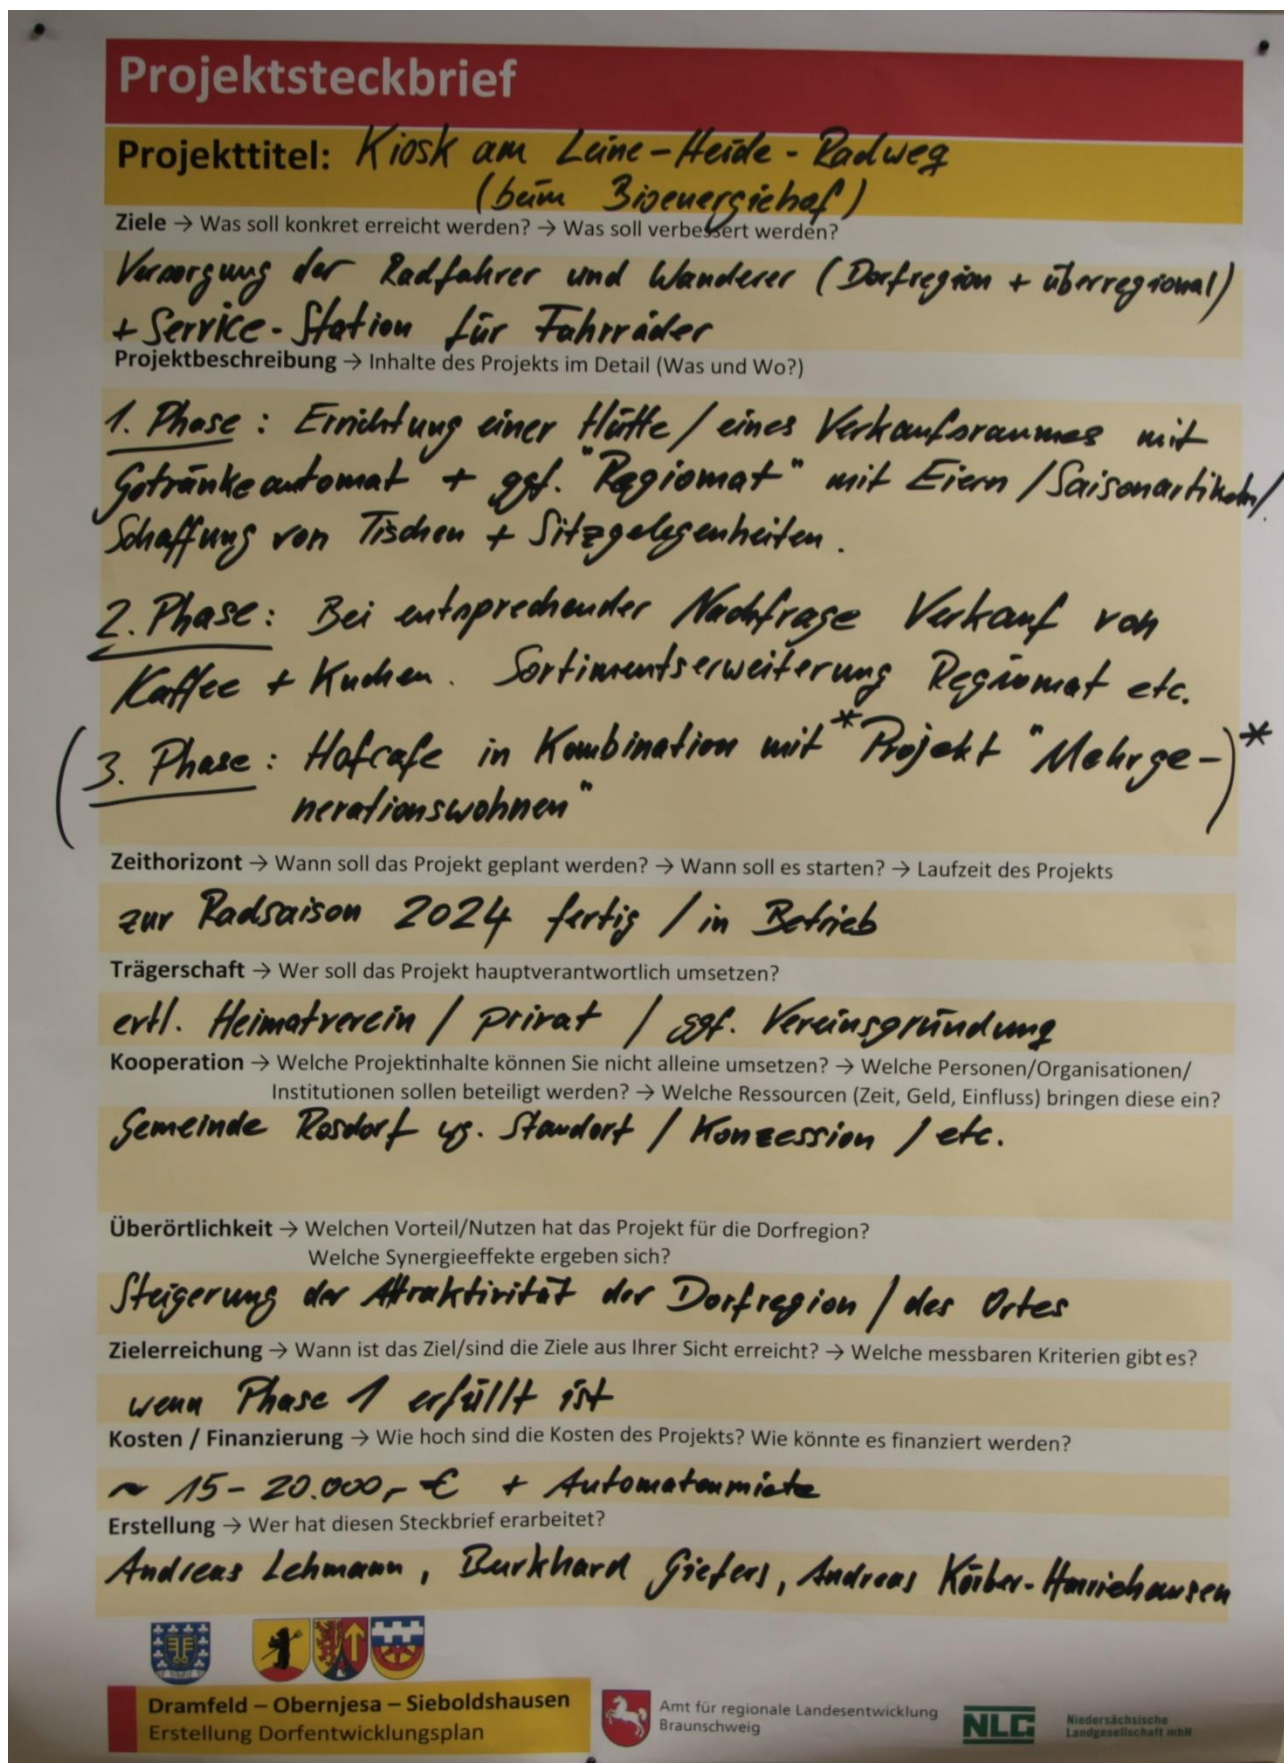 Projektsteckbrief
Projekttitel: Kiosk am Leine-Heide-Radweg
(beim Bioenergiehof)
Ziele → Was soll konkret erreicht werden? → Was soll verbessert werden?
Versorgung der Radfahrer und Wanderer (Dorfregion + überregional)
+ Service-Station für Fahrräder
Projektbeschreibung → Inhalte des Projekts im Detail (Was und Wo?)
1. Phase: Errichtung einer Hütte / eines Verkaufsraumes mit
Getränkeautomat + ggf. "Regiomat" mit Eiern / Saisonartikeln /
Schaffung von Tischen + Sitzgelegenheiten.
2. Phase: Bei entsprechender Nachfrage Verkauf von
Kaffee + Kuchen. Sortimentserweiterung Regiomat etc.
(3. Phase: Hofcafe in Kombination mit * Projekt "Mehrge-)*
nerationswohnen"
Zeithorizont → Wann soll das Projekt geplant werden? → Wann soll es starten? → Laufzeit des Projekts
zur Radsaison 2024 fertig / in Betrieb
Trägerschaft → Wer soll das Projekt hauptverantwortlich umsetzen?
evtl. Heimatverein / privat / ggf. Vereinsgründung
Kooperation → Welche Projektinhalte können Sie nicht alleine umsetzen? → Welche Personen/Organisationen/
Institutionen sollen beteiligt werden? → Welche Ressourcen (Zeit, Geld, Einfluss) bringen diese ein?
Gemeinde Rosdorf wg. Standort / Konzession / etc.
Überörtlichkeit → Welchen Vorteil/Nutzen hat das Projekt für die Dorfregion?
Welche Synergieeffekte ergeben sich?
Steigerung der Attraktivität der Dorfregion / des Ortes
Zielerreichung → Wann ist das Ziel/sind die Ziele aus Ihrer Sicht erreicht? → Welche messbaren Kriterien gibt es?
wenn Phase 1 erfüllt ist
Kosten / Finanzierung → Wie hoch sind die Kosten des Projekts? Wie könnte es finanziert werden?
~ 15-20.000,- € + Automatenmiete
Erstellung → Wer hat diesen Steckbrief erarbeitet?
Andreas Lehmann, Burkhard Giefers, Andreas Körber-Harriehausen
Dramfeld – Obernjesa – Sieboldshausen
Erstellung Dorfentwicklungsplan
Amt für regionale Landesentwicklung
Braunschweig
NLG
Niedersächsische
Landgesellschaft mbH